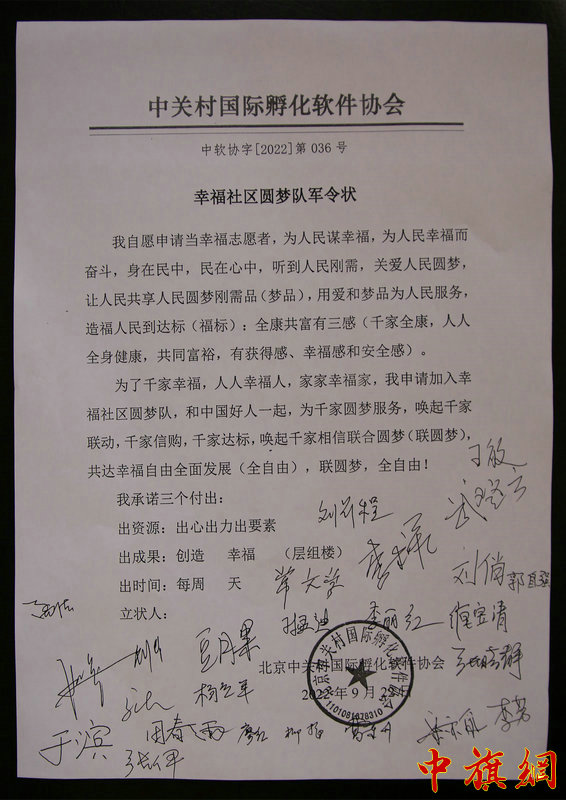 中关村国际孵化软件协会
中软协字[2022]第 036 号
幸福社区圆梦队军令状
我自愿申请当幸福志愿者，为人民谋幸福，为人民幸福而
奋斗，身在民中，民在心中，听到人民刚需，关爱人民圆梦，
让人民共享人民圆梦刚需品（梦品），用爱和梦品为人民服务，
造福人民到达标（福标）：全康共富有三感（千家全康，人人
全身健康，共同富裕，有获得感、幸福感和安全感）。
为了千家幸福，人人幸福人，家家幸福家，我申请加入幸
福社区圆梦队，和中国好人一起，为千家圆梦服务，唤起千家
联动，千家信购，千家达标，唤起千家相信联合圆梦（联圆梦），
共达幸福自由全面发展（全自由），联圆梦，全自由！
我承诺三个付出：
出资源：出心出力出要素
出成果：创造 幸福 （层组楼）
出时间：每周 天
立状人：
刘俏
李丽红
豆月果
于滨
北京中关村国际孵化软件协会
2022 年 9 月 29 日
北京中关村国际孵化软件协会
中旗網